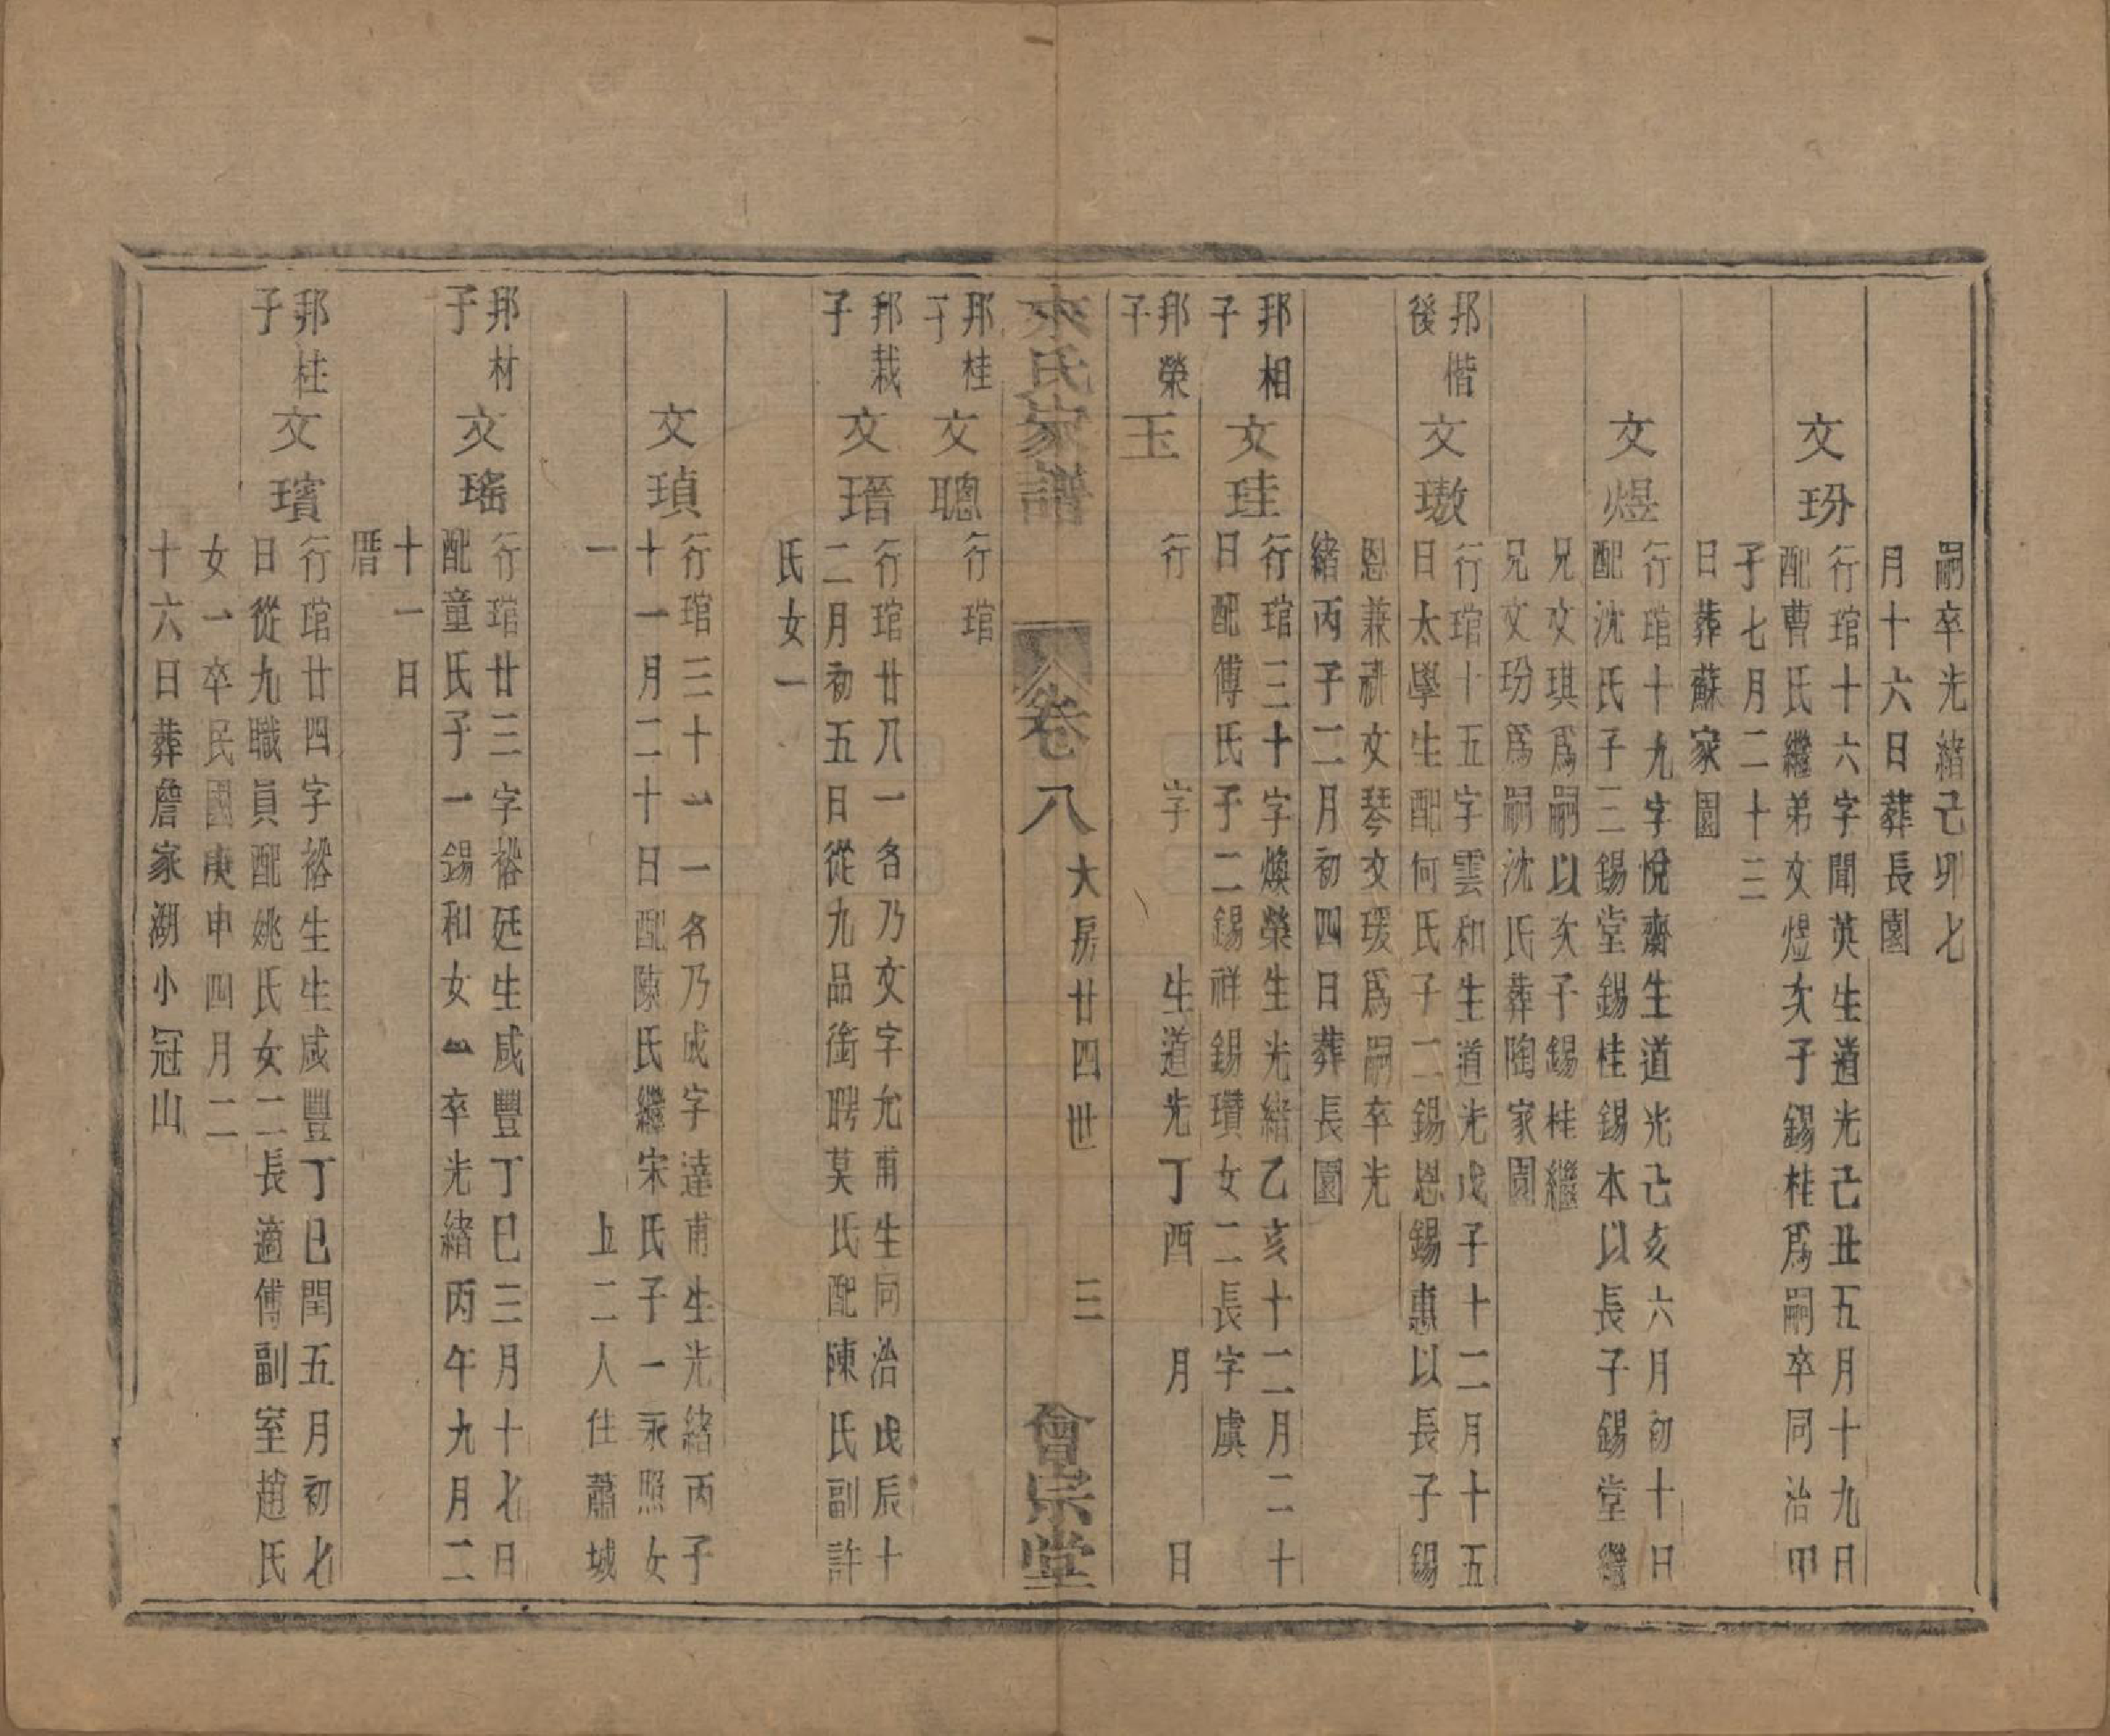 嗣卒光緒己卯七
月十六日葬長園
文玢
行琯十六字聞英生道光己丑五月十九日
配曹氏繼弟文煜次子錫桂爲嗣卒同治甲
子七月二十三
日葬蘇家園
文煜
行琯十九字悅齋生道光己亥六月初十日
配沈氏子三錫堂錫桂錫本以長子錫堂繼
兄文琪爲嗣以次子錫桂繼
兄文玢爲嗣沈氏葬陶家園
邦楷
後
文璈
行琯十五字雲和生道光戊子十二月十五
日太學生配何氏子二錫恩錫惠以長子錫
恩兼祧文琴文瑗爲嗣卒光
緒丙子二月初四日葬長園
邦相
子
文珪
行琯三十字煥榮生光緒乙亥十二月二十
日配傅氏子二錫祥錫瓚女二長字虞
邦榮
子
玉
行 字 生道光丁酉 月 日
來氏家譜 卷八 大房廿四世 三 會宗堂
邦桂
子
文聰
行琯
邦栽
子
文瑨
行琯廿八一名乃文字允甫生同治戊辰十
二月初五日從九品銜聘莫氏配陳氏副許
氏女一
文瑱
行琯三十一一名乃成字達甫生光緒丙子
十一月二十日配陳氏繼宋氏子一永照女
一 上二人住蕭城
邦材
子
文瑤
行琯廿三字裕廷生咸豐丁巳三月十七日
配童氏子一錫和女一卒光緒丙午九月二
十一日
厝
邦柱
子
文璸
行琯廿四字裕生生咸豐丁巳閏五月初七
日從九職員配姚氏女二長適傅副室趙氏
女一卒民國庚申四月二
十六日葬詹家湖小冠山